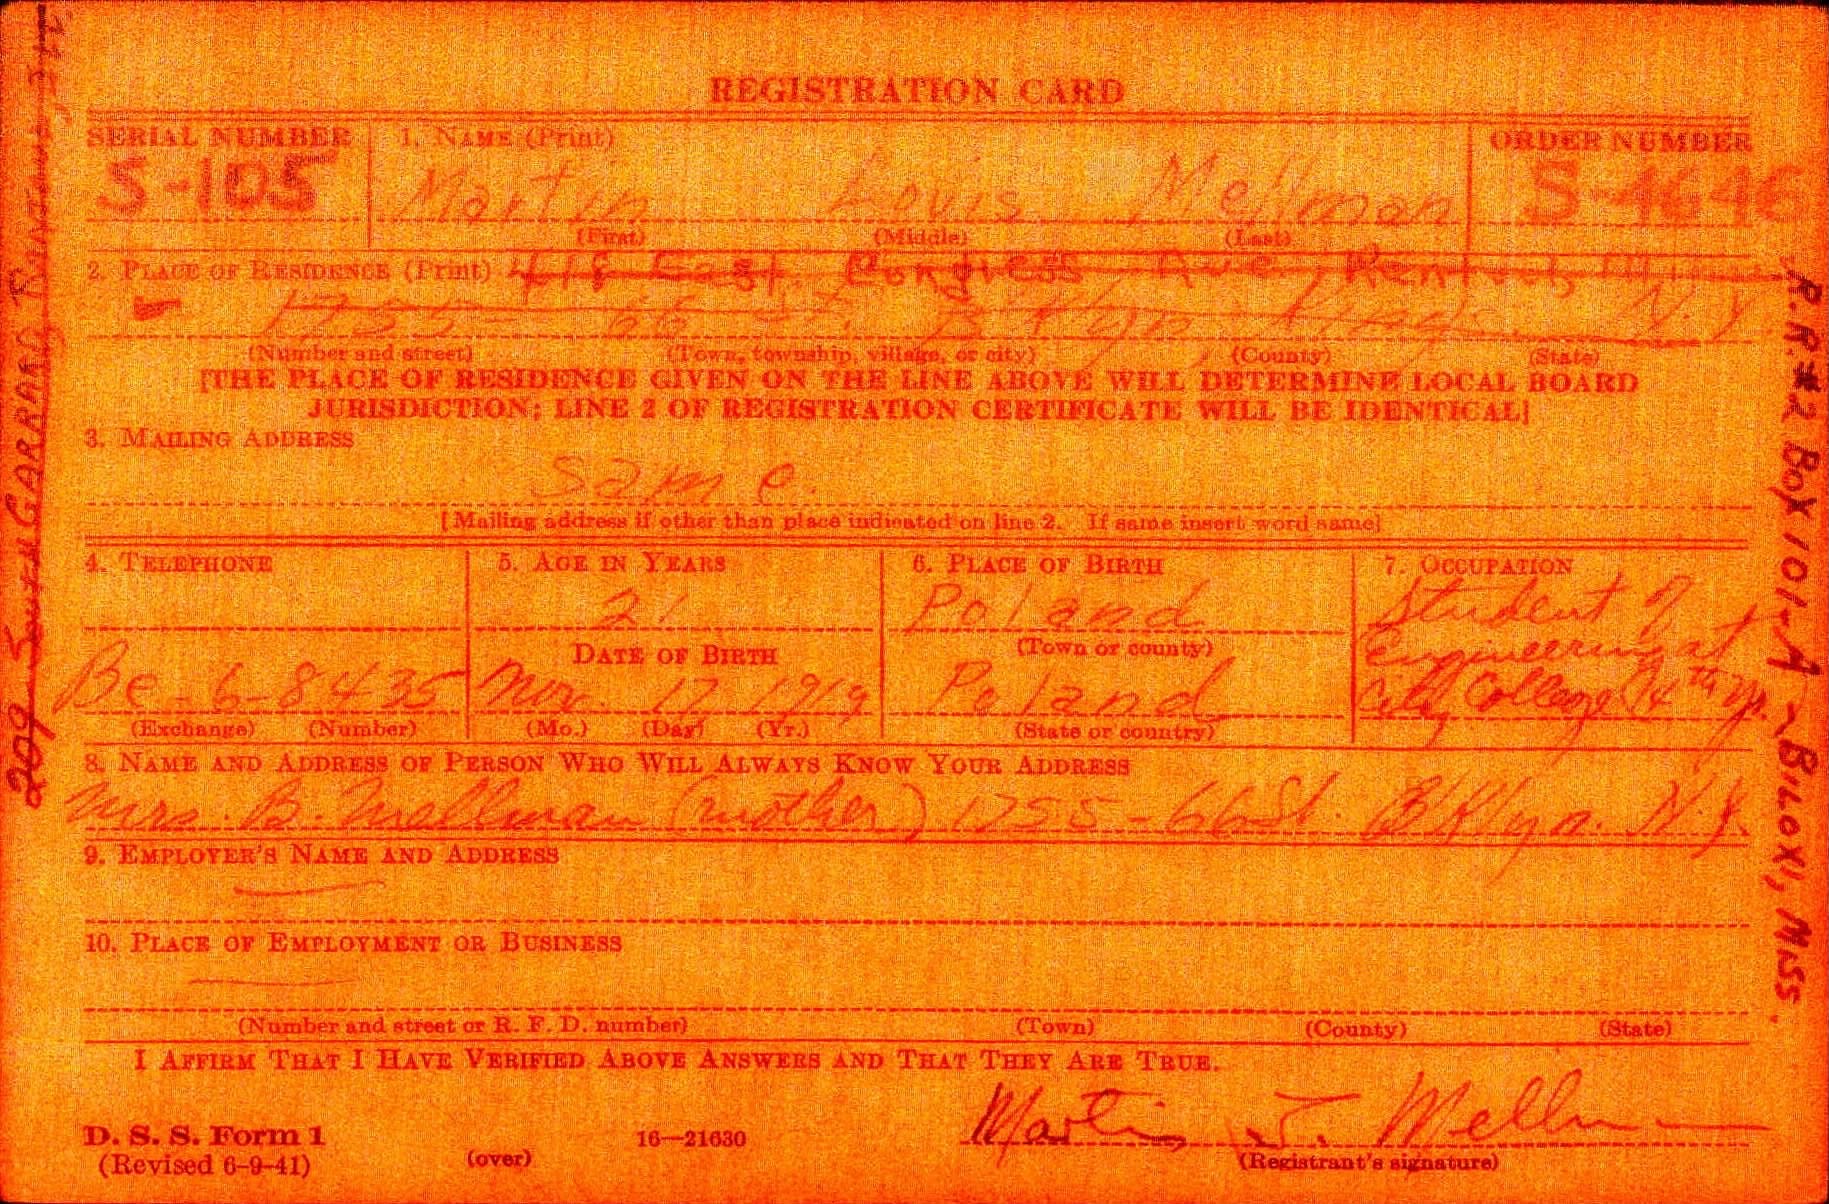 REGISTRATION CARD
SERIAL NUMBER 1. NAME (Print) ORDER NUMBER
S-105 Martin Louis Mellman S-4646
(First) (Middle) (Last)
2. PLACE OF RESIDENCE (Print) 418 East Congress Ave,
1755- 66 St. B'klyn Kings N.Y.
(Number and street) (Town, township, village, or city) (County) (State)
[THE PLACE OF RESIDENCE GIVEN ON THE LINE ABOVE WILL DETERMINE LOCAL BOARD
JURISDICTION; LINE 2 OF REGISTRATION CERTIFICATE WILL BE IDENTICAL]
3. MAILING ADDRESS
Same.
[Mailing address if other than place indicated on line 2. If same insert word same]
4. TELEPHONE 5. AGE IN YEARS 6. PLACE OF BIRTH 7. OCCUPATION
21 Poland Student of
DATE OF BIRTH (Town or county) Engineering at
Be-6-8435 Nov. 17 1919 Poland City College (4th yr.
(Exchange) (Number) (Mo.) (Day) (Yr.) (State or country)
8. NAME AND ADDRESS OF PERSON WHO WILL ALWAYS KNOW YOUR ADDRESS
Mrs. B. Mellman (mother) 1755-66 St. B'klyn. N.Y.
9. EMPLOYER'S NAME AND ADDRESS
10. PLACE OF EMPLOYMENT OR BUSINESS
(Number and street or R. F. D. number) (Town) (County) (State)
I AFFIRM THAT I HAVE VERIFIED ABOVE ANSWERS AND THAT THEY ARE TRUE.
Martin L. Mellman
D. S. S. Form 1 16—21630
(Revised 6-9-41) (over) (Registrant's signature)
209 SOUTH GARRARD
R.R.#2 BOX 101-A - BILOXI, MISS.